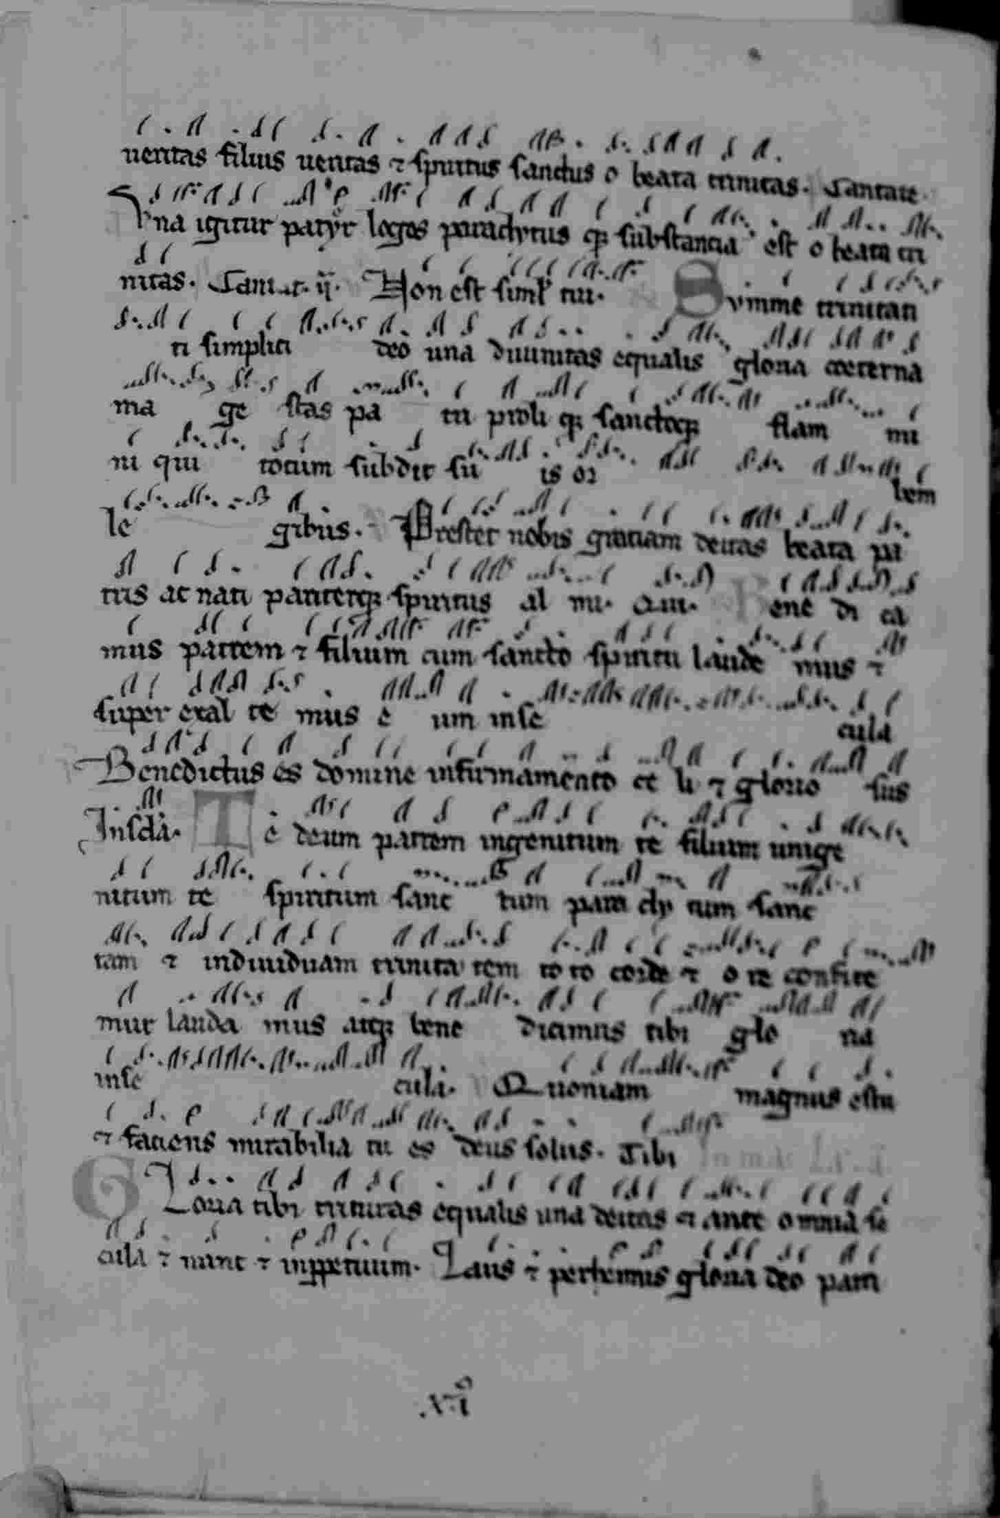 ueritas filius ueritas ⁊ spiritus sanctus o beata trinitas. Cantate.
Vna igitur pat͛yr logos paraclytus q; substancia est o beata tri
nitas. Non est simil' tui. Summe trinitati
ti simplici deo una diuinitas equalis gloria coeterna
ma ge stas pa tri proli q; sanctoq; flam mi
ni qui totum subdit su is or bem
le gibus. Prestet nobis gratiam deitas beata pa
tris ac nati pariterq; spiritus al mi. Qui. Bene di ca
mus patrem ⁊ filium cum sancto spiritu laude mus ⁊
super exal te mus e um inse cula
Benedictus es domine infirmamento et li ⁊ glorio sus
Insc̄la. Te deum patrem ingenitum te filium unige
nitum te spiritum sanc tum para cly tum sanc
tam ⁊ indiuiduam trinita tem to to corde ⁊ o re confite
mur lauda mus atq; bene dicimus tibi glo ria
inse cula. Quoniam magnus es tu
et faciens mirabilia tu es deus solus. Tibi
GLoria tibi trinitas equalis una deitas et ante omnia se
cula ⁊ nunc ⁊ inꝑpetuum. Laus ⁊ perhennis gloria deo patri
.xi͛.